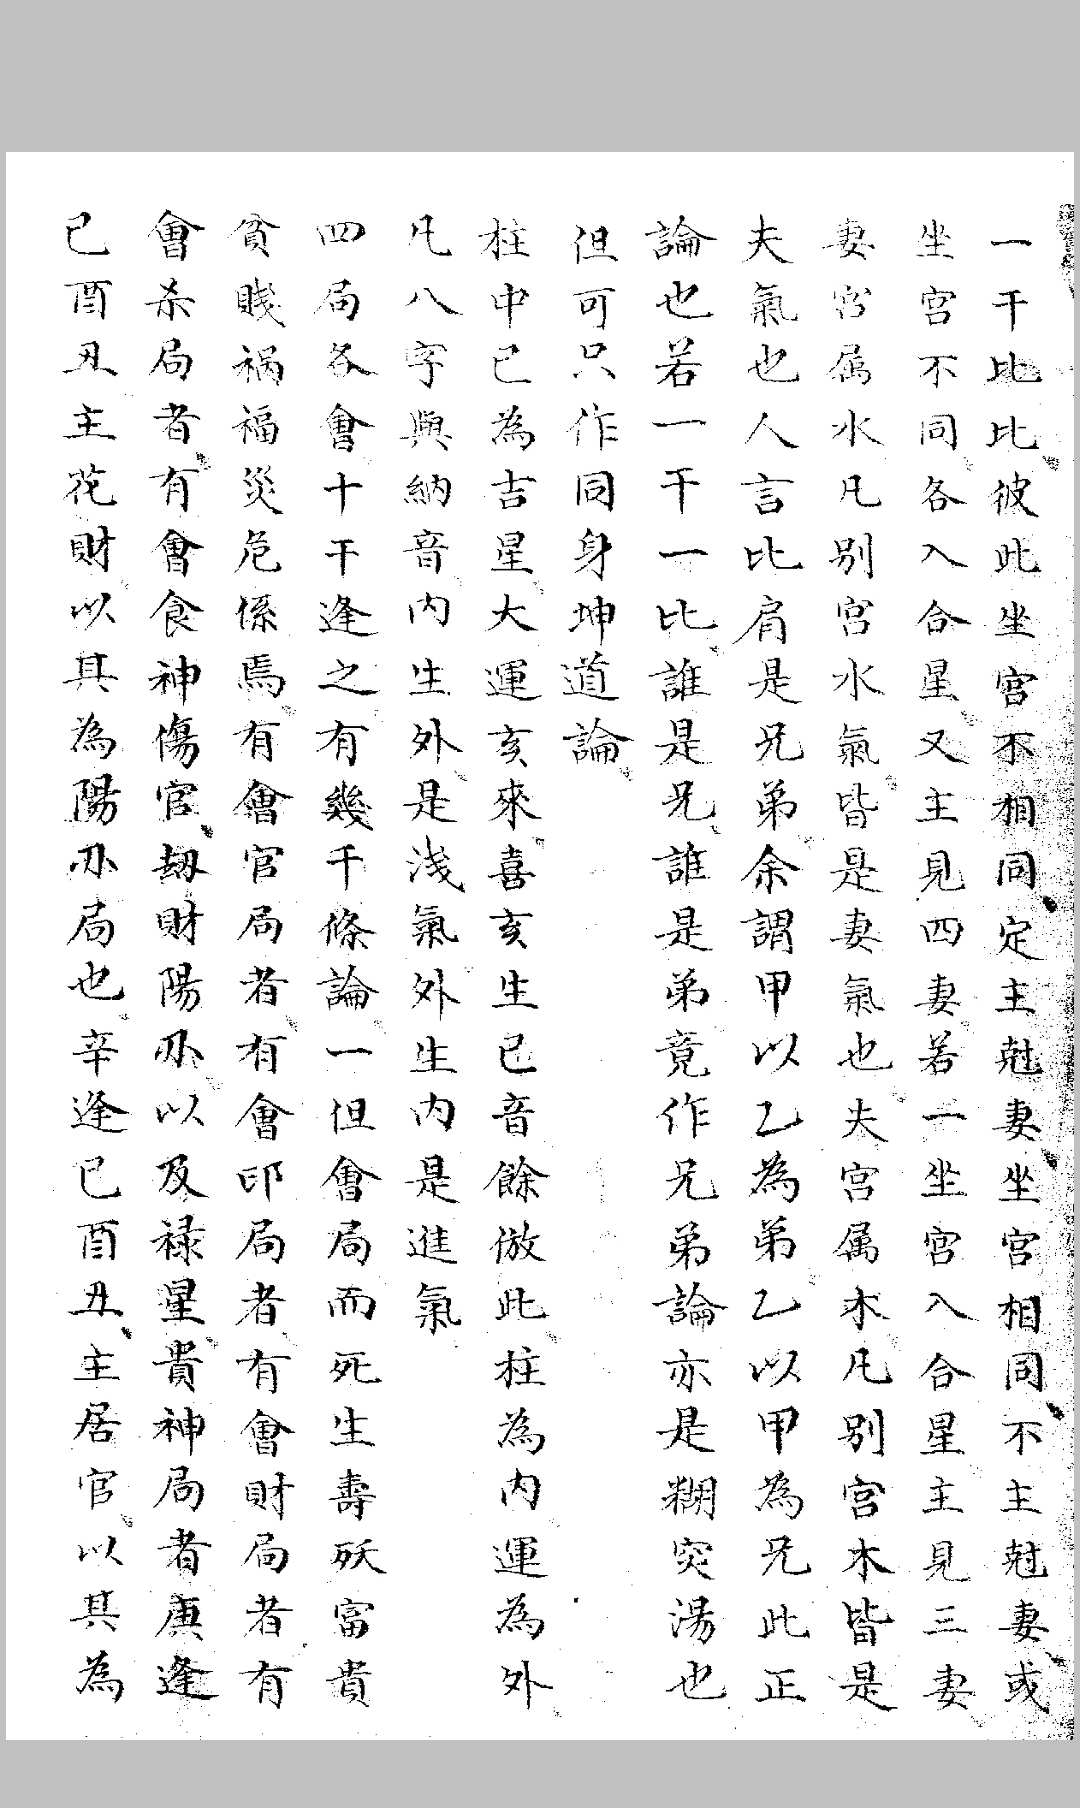 一干比比彼此坐宫不相同定主尅妻坐宫相同不主尅妻或
坐宫不同各入合星又主見四妻若一坐宫入合星主見三妻
妻宫属水凡别宫水氣皆是妻氣也夫宫属木凡别宫木皆是
夫氣也人言比肩是兄弟余謂甲以乙為弟乙以甲為兄此正
論也若一干一比誰是兄誰是弟竟作兄弟論亦是糊突湯也
但可只作同身坤道論
柱中已為吉星大運亥來喜亥生已音餘倣此柱為内運為外
凡八字與納音内生外是淺氣外生内是進氣
四局各會十干逢之有幾千條論一但會局而死生壽殀富貴
貧賤禍福災危係焉有會官局者有會印局者有會財局者有
會杀局者有會食神傷官劫財陽刃以及禄星貴神局者庚逢
已酉丑主花財以其為陽刃局也辛逢已酉丑主居官以其為